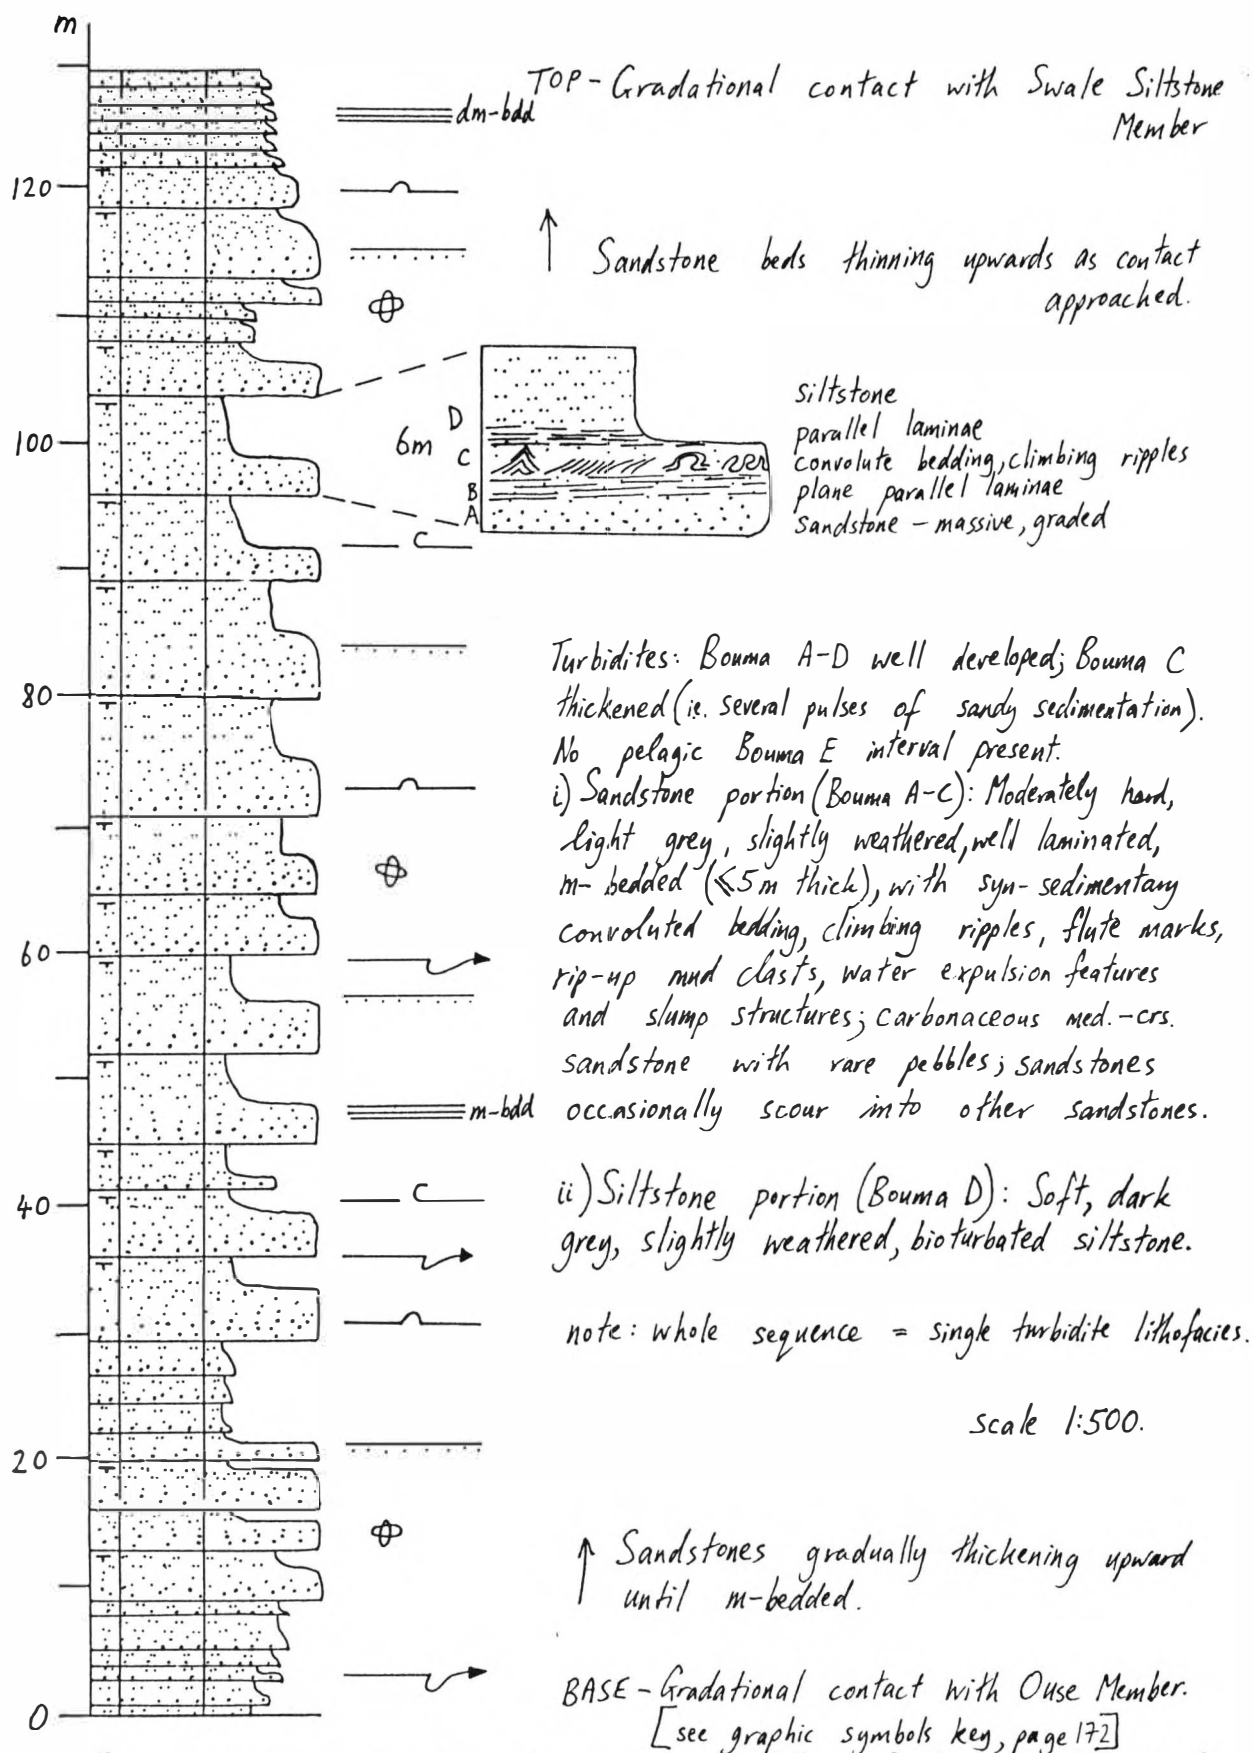 m
TOP - Gradational contact with Swale Siltstone
Member
dm-bdd
120
Sandstone beds thinning upwards as contact
approached.
100
6m
D
C
B
A
siltstone
parallel laminae
convolute bedding, climbing ripples
plane parallel laminae
sandstone - massive, graded
C
80
Turbidites: Bouma A-D well developed; Bouma C
thickened (ie. several pulses of sandy sedimentation).
No pelagic Bouma E interval present.
i) Sandstone portion (Bouma A-C): Moderately hard,
light grey, slightly weathered, well laminated,
m-bedded (⩽5m thick), with syn-sedimentary
convoluted bedding, climbing ripples, flute marks,
60
rip-up mud clasts, water expulsion features
and slump structures; carbonaceous med.-crs.
sandstone with rare pebbles; sandstones
m-bdd
occasionally scour into other sandstones.
40
C
ii) Siltstone portion (Bouma D): Soft, dark
grey, slightly weathered, bioturbated siltstone.
note: whole sequence = single turbidite lithofacies.
scale 1:500.
20
Sandstones gradually thickening upward
until m-bedded.
BASE - Gradational contact with Ouse Member.
0
[see graphic symbols key, page 172]